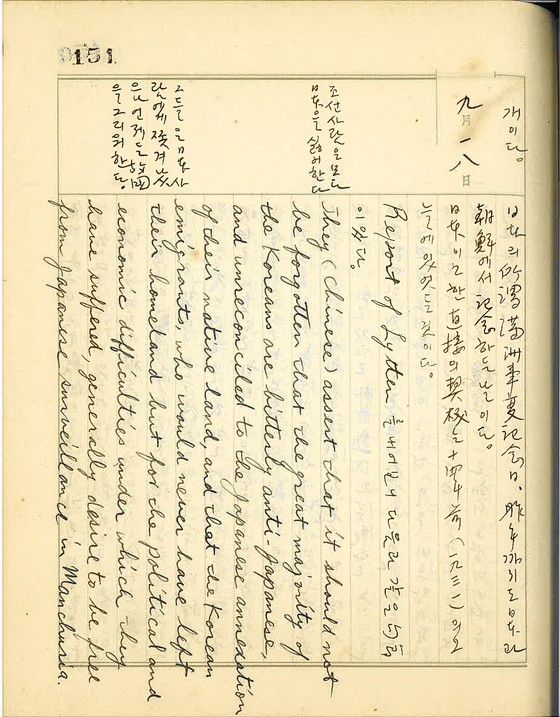 151
개이다.
九月一八日
日本의 所謂 滿洲事變 記念日. 昨年까지도 日本과
朝鮮에서 記念하든 날이다.
直接의 契機는 十四年前 (一九三一)의 오
늘에 있었든 것이다.
Report of Lytton 를 내어보니 다음과 같은 句節
이 있다.
They (Chinese) assert that it should not
be forgotten that the great majority of
the Koreans are bitterly anti-Japanese,
and unreconciled to the Japanese annexation
of their native land, and that the Korean
emigrants, who would never have left
their homeland but for the political and
economic difficulties under which they
have suffered, generally desire to be free
from Japanese surveillance in Manchuria.
조선사람은
日本을 싫어한다
그들은 日本사
람에게 쫓겨났
으나 언제든 故國
을 그리워한다.